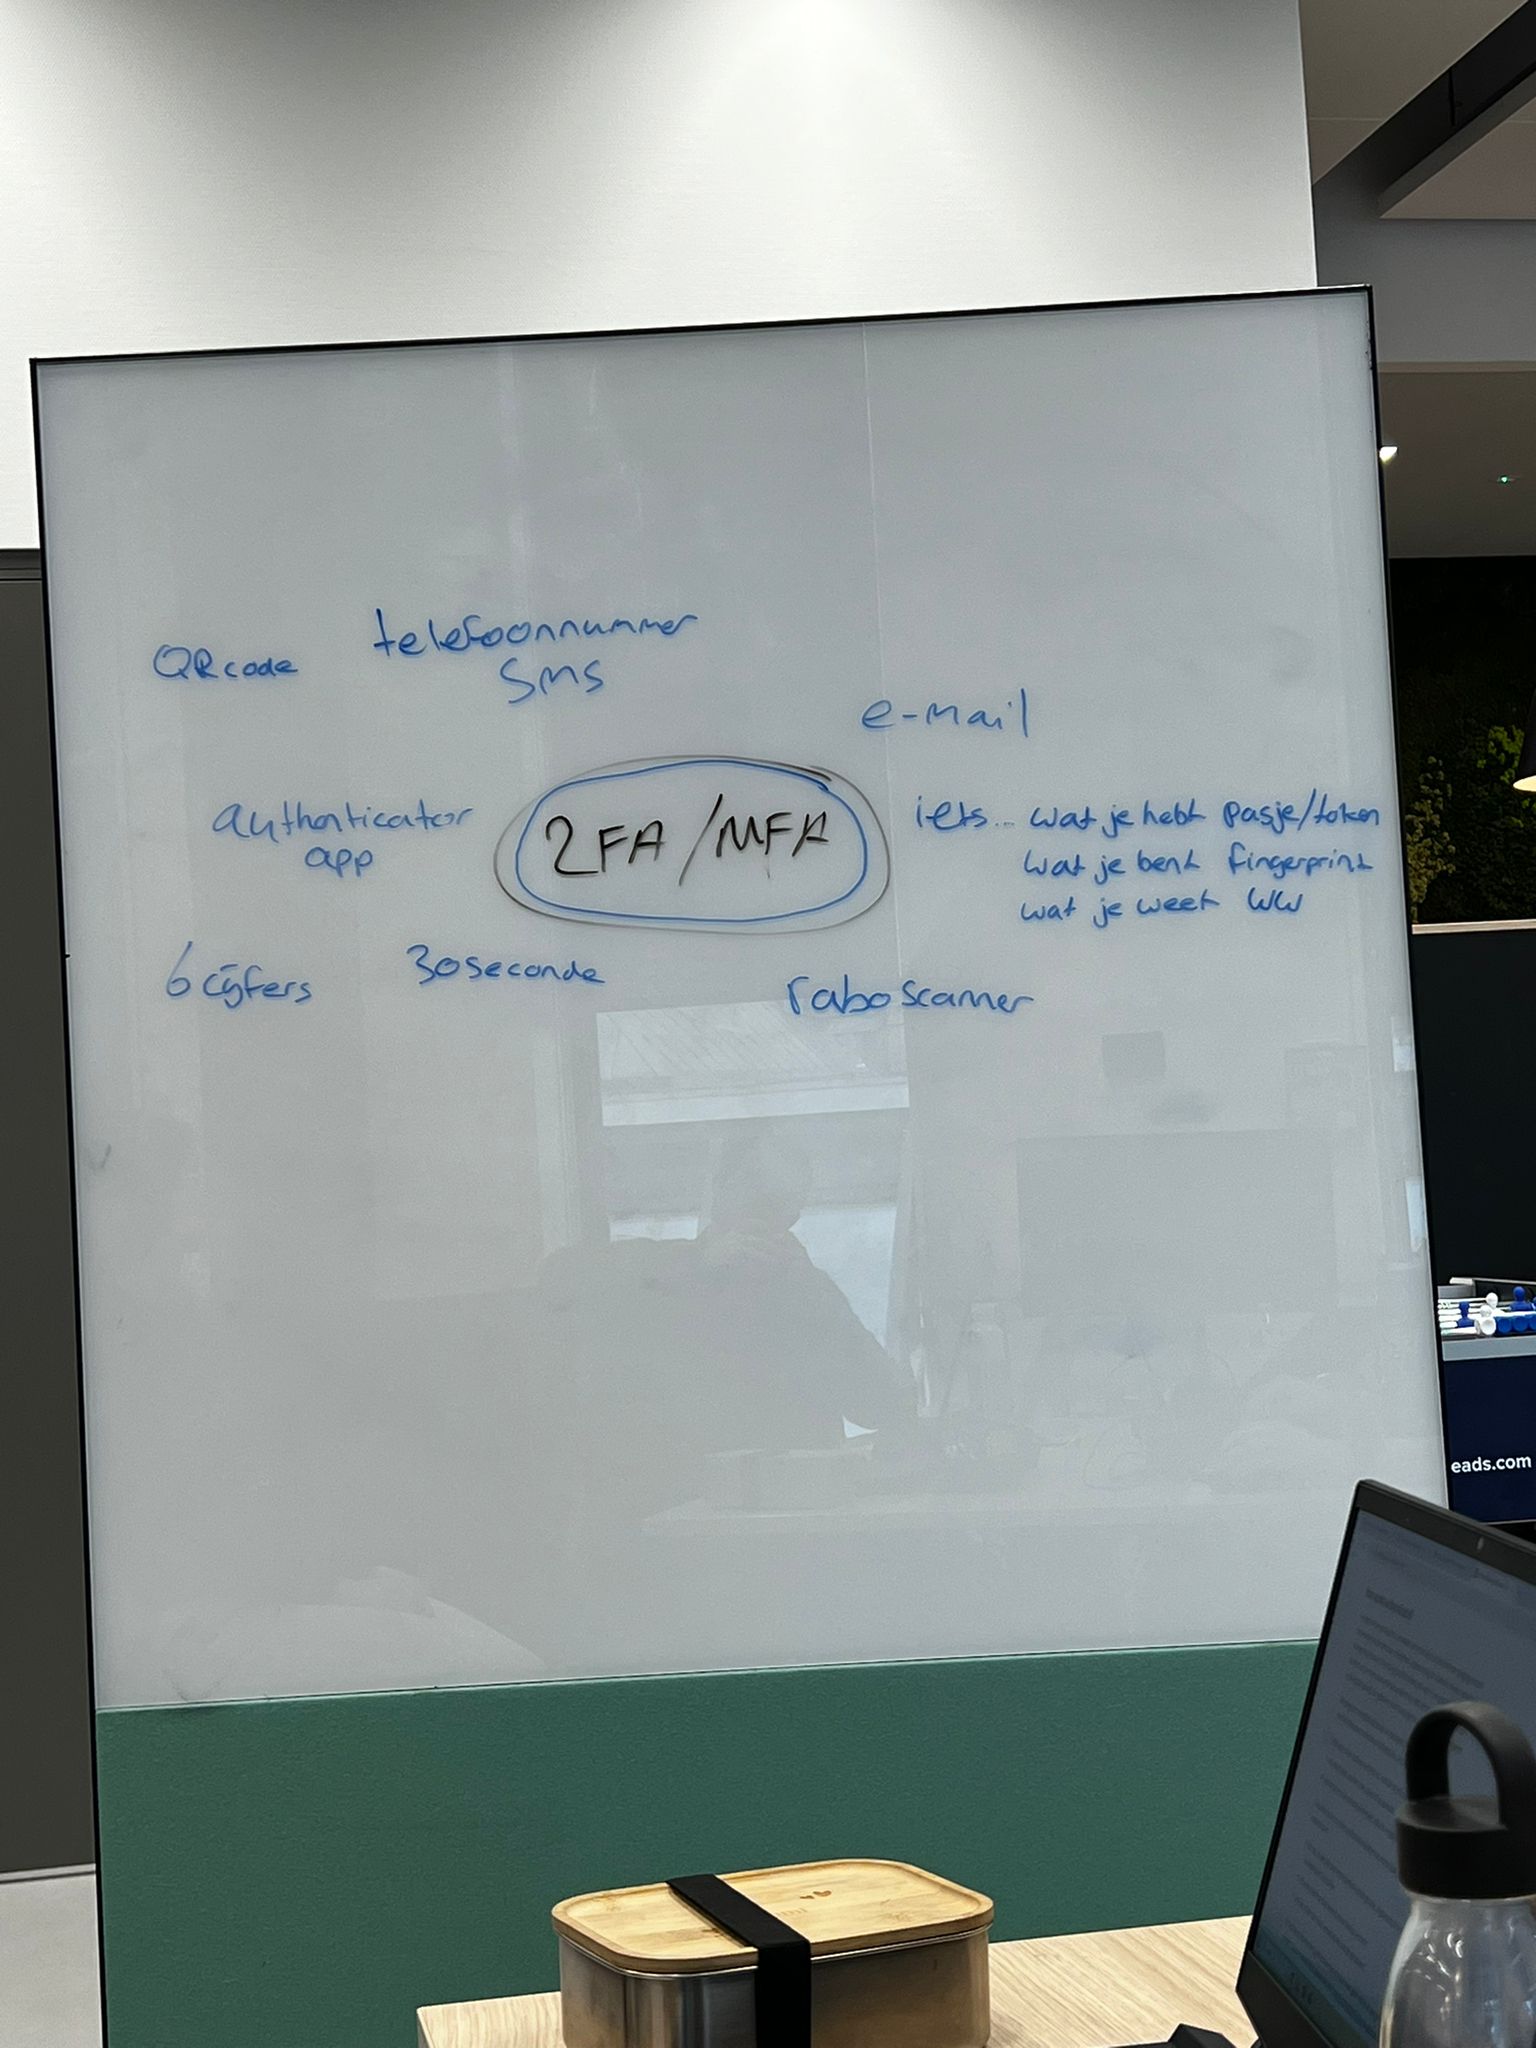 QR code
telefoonnummer
SMS
e-mail
authenticator
app
2FA/MFA
iets... wat je hebt pasje/token
wat je bent fingerprint
wat je weet WW
6 cijfers
30 seconde
rabo scanner
eads.com